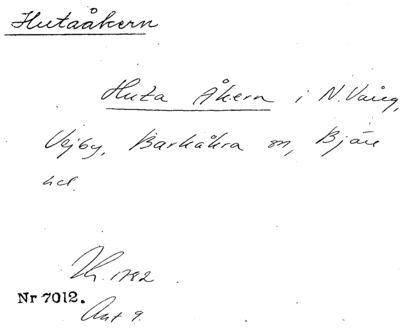 Hutaåkern
Huta Åkern i N. Vång,
Vejby, Barkåkra sn, Bjäre
hd.
1782
Nr 7012.
Ant 9.